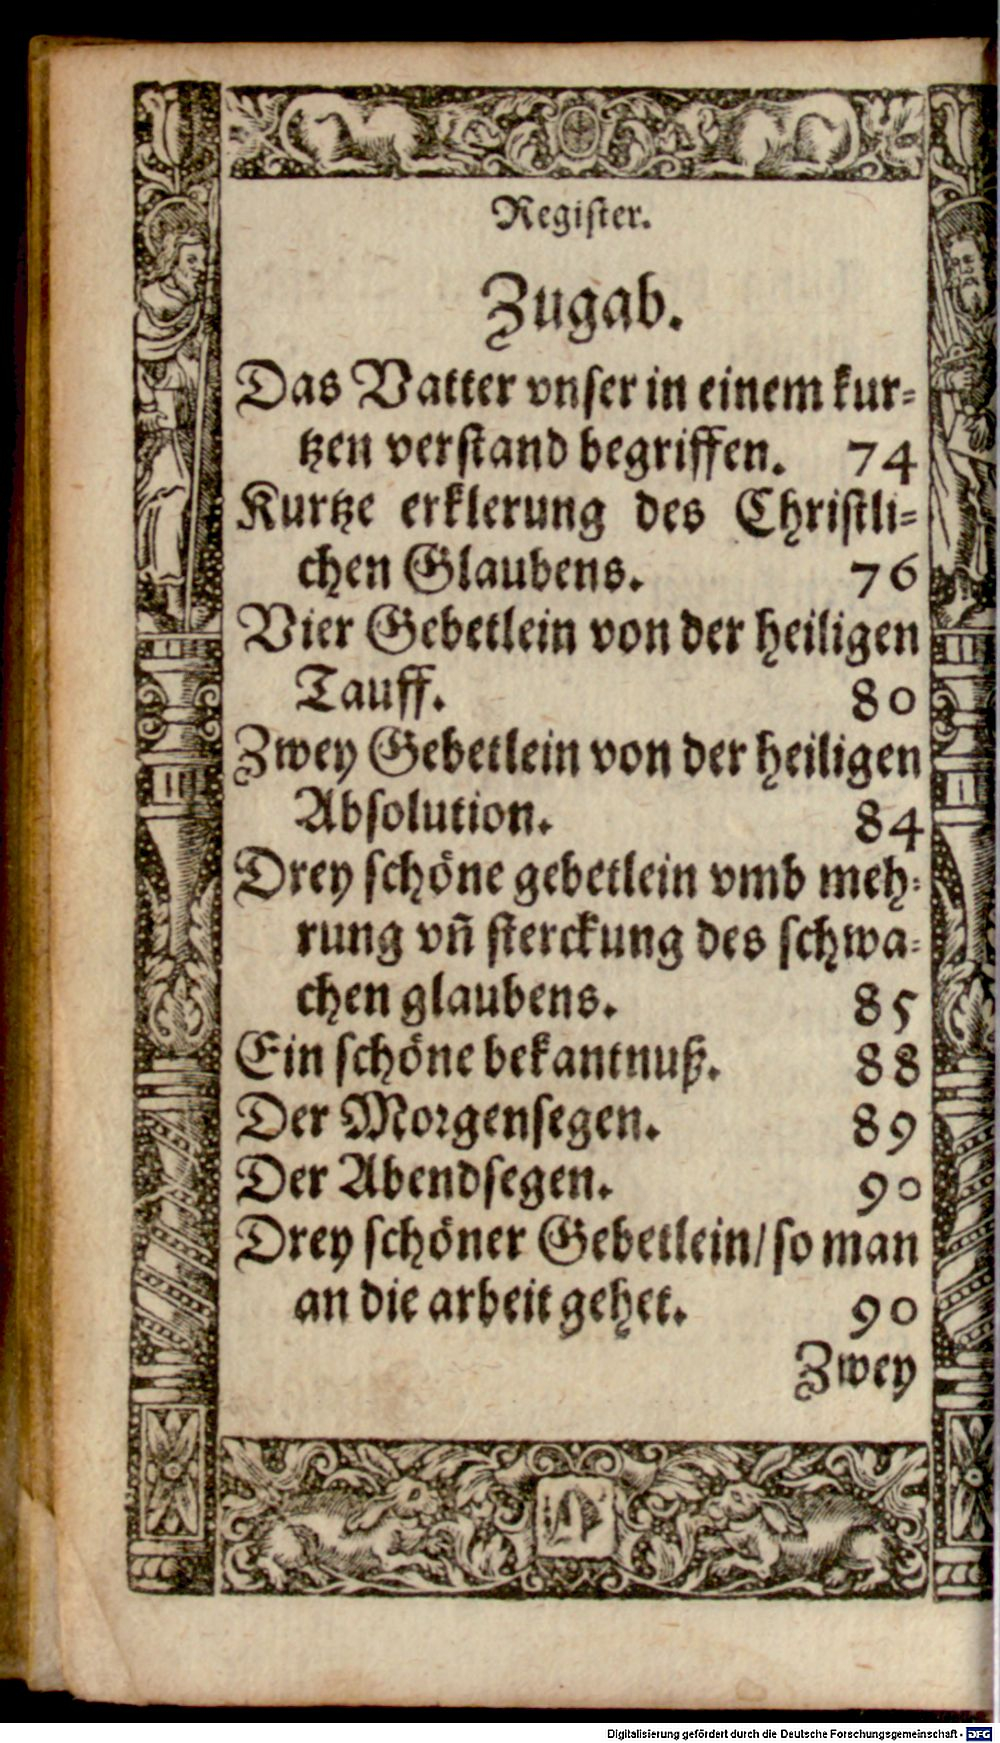 Register.
Zugab.
Das Vatter vnser in einem kur⸗
tzen verstand begriffen. 74
Kurtze erklerung des Christli⸗
chen Glaubens. 76
Vier Gebetlein von der heiligen
Tauff. 80
Zwey Gebetlein von der heiligen
Absolution. 84
Drey schöne gebetlein vmb meh⸗
rung vñ sterckung des schwa⸗
chen glaubens. 85
Ein schöne bekantnuß. 88
Der Morgensegen. 89
Der Abendsegen. 90
Drey schöner Gebetlein/ so man
an die arbeit gehet. 90
Zwey
Digitalisierung gefördert durch die Deutsche Forschungsgemeinschaft - DFG